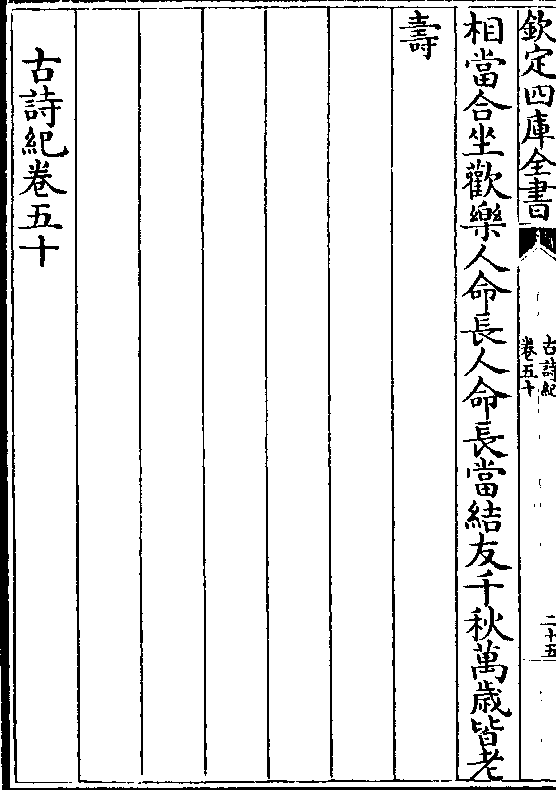 欽定四庫全書
古詩紀
卷五十
二十五
相當合坐歡樂人命長人命長當結友千秋萬歳皆老
壽
古詩紀卷五十